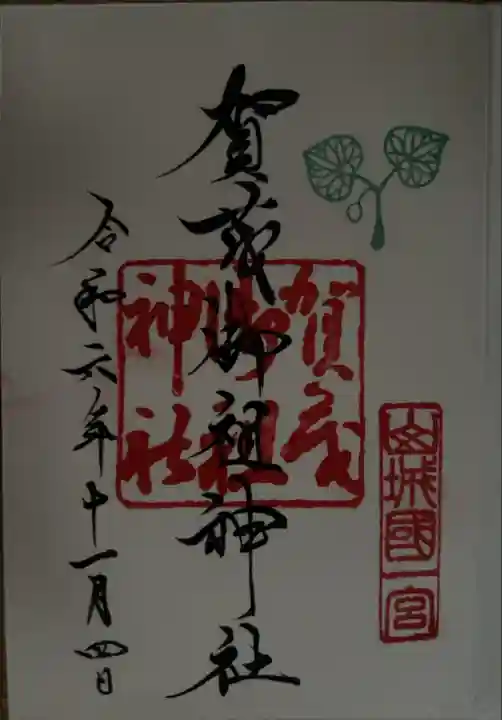 山城國一宮
賀茂御祖神社
賀茂
御祖
神社
令和六年十一月四日